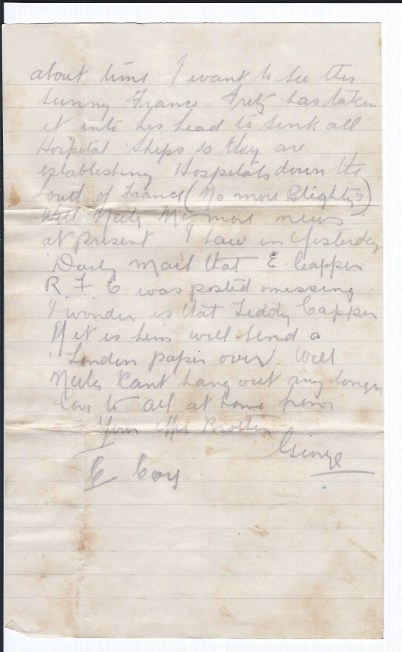 about time I want to see this
sunny France. Fritz has taken
it into his head to sink all
Hospital ships so they are
establishing Hospitals down the
out of France (No more Blighty)
Well Neely no more news
at present I saw in Yesterday
Daily Mail that E Capper
R. F. C was posted missing
I wonder is that Teddy Capper
If it is him will send a
London paper over. Well
Neely cant hang out any longer
love to all at home from
Your Aff Brother
George
C Coy.